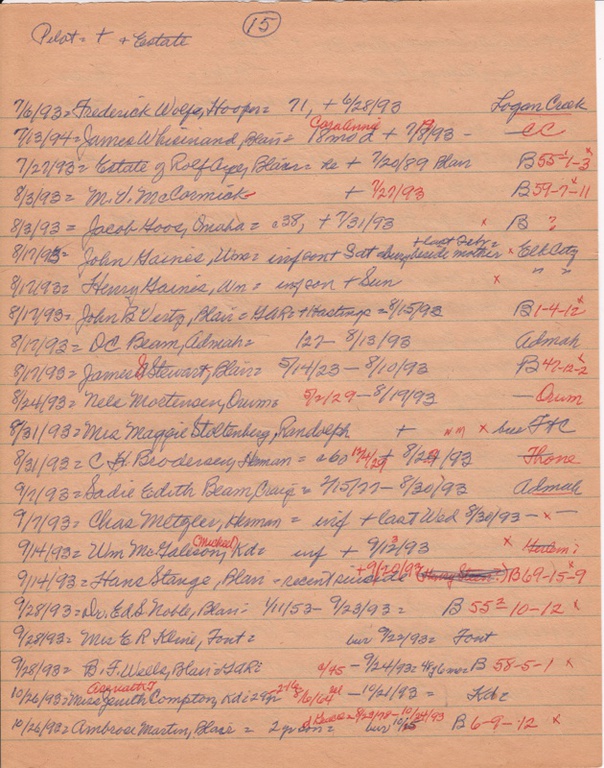 15
Pilot = + & Estate
7/6/93 = Frederick Wolfe, Hooper = 71, + 6/28/93 Logan Creek
7/13/94 = James Whisinand, Blair = 18 mo d + 7/8/93 - CC
7/27/93 = Estate of Rolf, Blair = he + 7/20/89 Blair B 55-1-3 x
8/3/93 = M. V. McCormick + 7/27/93 B 59-7-11
8/3/93 = Jacob Goos, Omaha = c38, + 7/31/93 x B ?
+ last Feb =
8/17/93 = John Gaines, Wm = inf son + Sat beside mother x Elk City
8/17/93 = Henry Gaines, Wm = inf son + Sun x " "
8/17/93 = John B Wertz, Blair = GAR = + Hastings = 8/15/93 B 1-4-12 x
8/17/93 = DC Beam, Admah = 127 - 8/13/93 Admah
8/17/93 = James A Stewart, Blair = 5/14/23 - 8/10/93 B 47-12-2 x
8/24/93 = Nels Mortensen, Orum = 5/2/29 - 8/19/93 - Orum
8/31/93 = Mrs Maggie Stoltenberg, Randolph + x see FHC
8/31/93 = C. H. Brodersen, Herman = a 60 + 8/29/93 Thone
9/7/93 = Sadie Edith Beam, Craig = 7/15/77 - 8/30/93 Admah
9/7/93 = Chas Metzler, Herman = inf + last Wed 8/30/93 - x -
9/14/93 = Wm McGalison, Kd = inf + 9/12/93 x
9/14/93 = Hans Stange, Blair - recent suicide B 69-15-9 x
9/28/93 = Dr. Ed S Noble, Blair = 1/11/53 - 9/23/93 = B 55-10-12 x
9/28/93 = Mrs E R Kline, Font = bur 9/22/93 = Font
9/28/93 = B. F. Wells, Blair = GAR = - 9/24/93 = B 58-5-1 x
10/26/93 = Miss Zenith Compton, Kd = 29 yr - 10/21/93 = Kd =
10/26/93 = Ambrose Martin, Blair = 2 yr son = bur 10/15 B 6-9-12 x